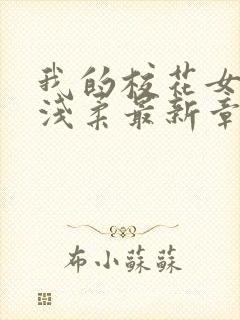 我的校花女
浅柔最新章
布小蘇蘇